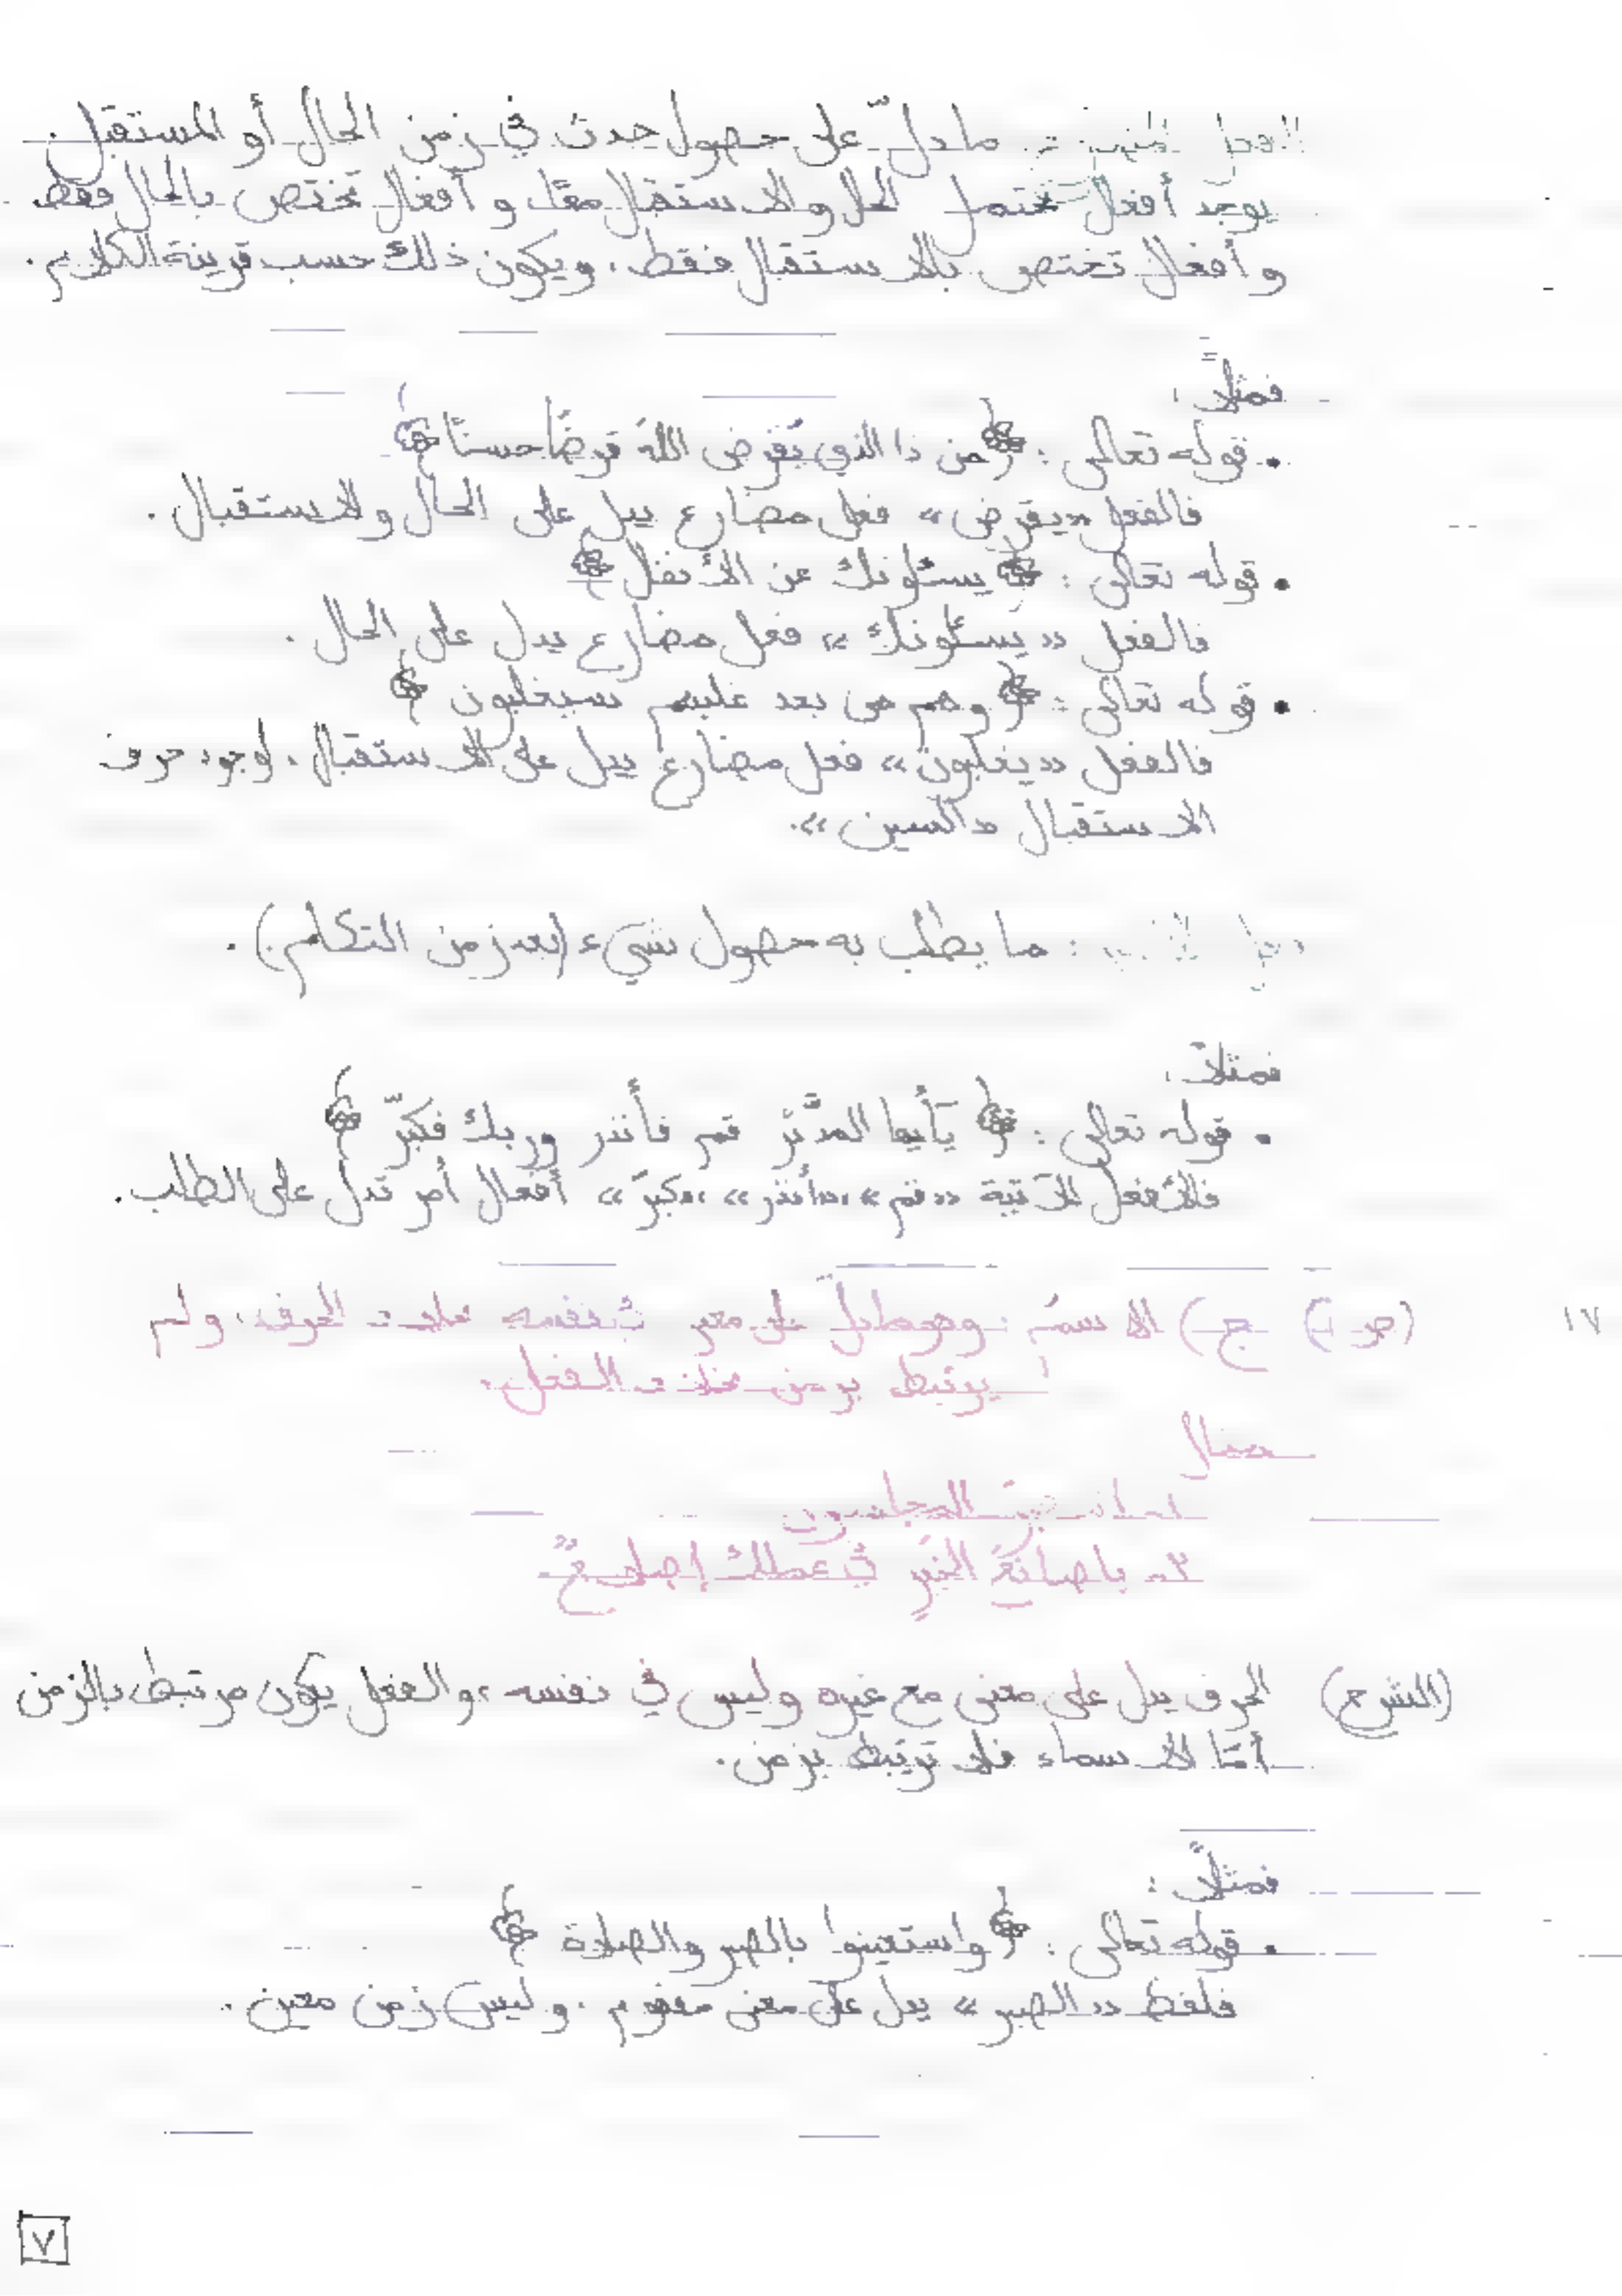 الفعل : ما دلّ على حصول حدث في زمن الحال أو المستقبل.
يوجد أفعال تحتمل الحال والاستقبال معًا، وأفعال تختص بالحال فقط
وأفعال تختص بالاستقبال فقط، ويكون ذلك حسب قرينة الكلام.
فمثلاً:
• قوله تعالى: ﴿من ذا الذي يُقرض اللهَ قرضًا حسنًا﴾
فالفعل «يقرض» فعل مضارع يدل على الحال والاستقبال.
• قوله تعالى: ﴿يسئلونك عن الأنفال﴾
فالفعل «يسئلونك» فعل مضارع يدل على الحال.
• قوله تعالى: ﴿وهم من بعد غلبهم سيغلبون﴾
فالفعل «يغلبون» فعل مضارع يدل على الاستقبال، لوجود حرف
الاستقبال «السين».
: ما يطلب به حصول شيء (بعد زمن التكلم).
فمثلاً:
• قوله تعالى: ﴿يَأيها المدَّثر قم فأنذر وربك فكبّر﴾
فالأفعال الآتية «قم»، «أنذر»، «كبّر» أفعال أمر تدل على الطلب.
١٧ (ص) ج) الاسم: وهو ما دلّ على معنى في نفسه خلاف الحرف، ولم
يرتبط بزمن خلاف الفعل.
مثال
١-
٢- يا صانعَ الخيرِ في عملك إصلاحٌ.
(الشرح) الحرف يدل على معنى مع غيره وليس في نفسه، والفعل يكون مرتبط بالزمن
أمّا الأسماء فلا ترتبط بزمن.
فمثلاً:
• قوله تعالى: ﴿واستعينوا بالصبر والصلاة﴾
فلفظ «الصبر» يدل على معنى مفهوم، وليس زمن معين.
٧